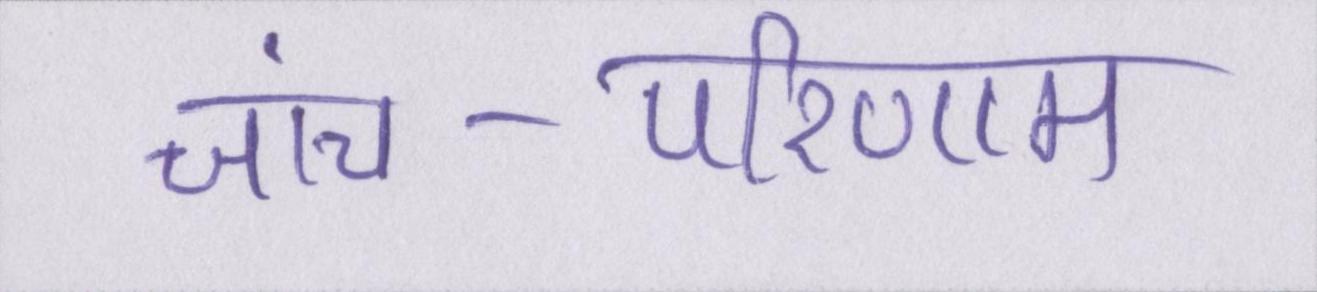 जांच - परिणाम